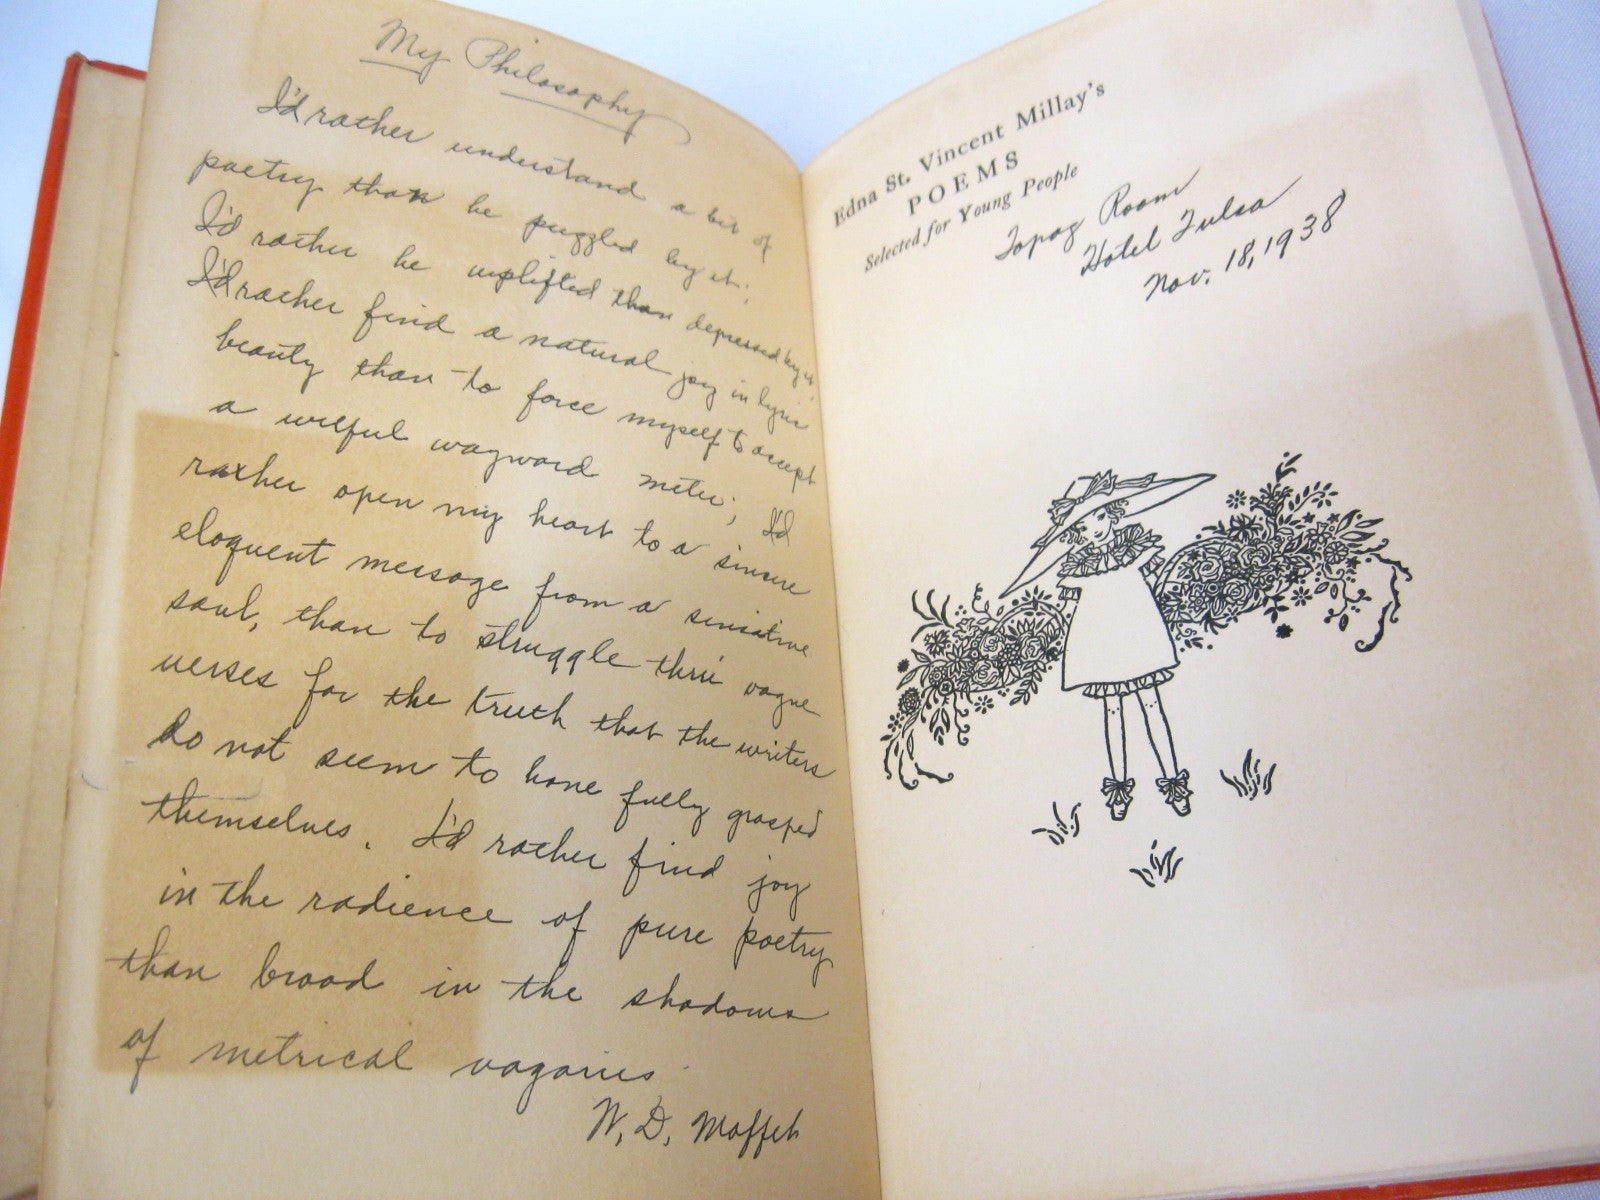 My Philosophy
I'd rather understand a bit of
poetry than be puzzled by it;
I'd rather be uplifted than depressed by it;
I'd rather find a natural joy in lyric
beauty than to force myself to accept
a wilful wayward meter; I'd
rather open my heart to a sincere
eloquent message from a sensitive
soul, than to struggle thru vague
verses for the truth that the writers
do not seem to have fully grasped
themselves. I'd rather find joy
in the radience of pure poetry
than brood in the shadows
of metrical vagaries
W. D. Moffet
Edna St. Vincent Millay's
POEMS
Selected for Young People
Topaz Room
Hotel Tulsa
Nov. 18, 1938